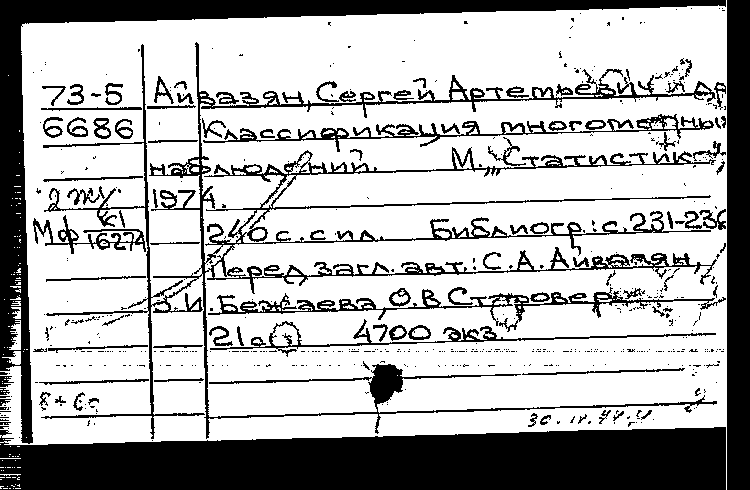 73-5 Айвазян, Сергей Артемьевич и др
6686 Классификация многомерных
наблюдений. М., „Статистика",
1974.
Мф К1
16274
240 с. с ил. Библиогр.: с. 231-236
Перед загл. авт.: С. А. Айвазян,
З. И. Бежаева, О. В Староверо
21а 4700 экз.
8+6